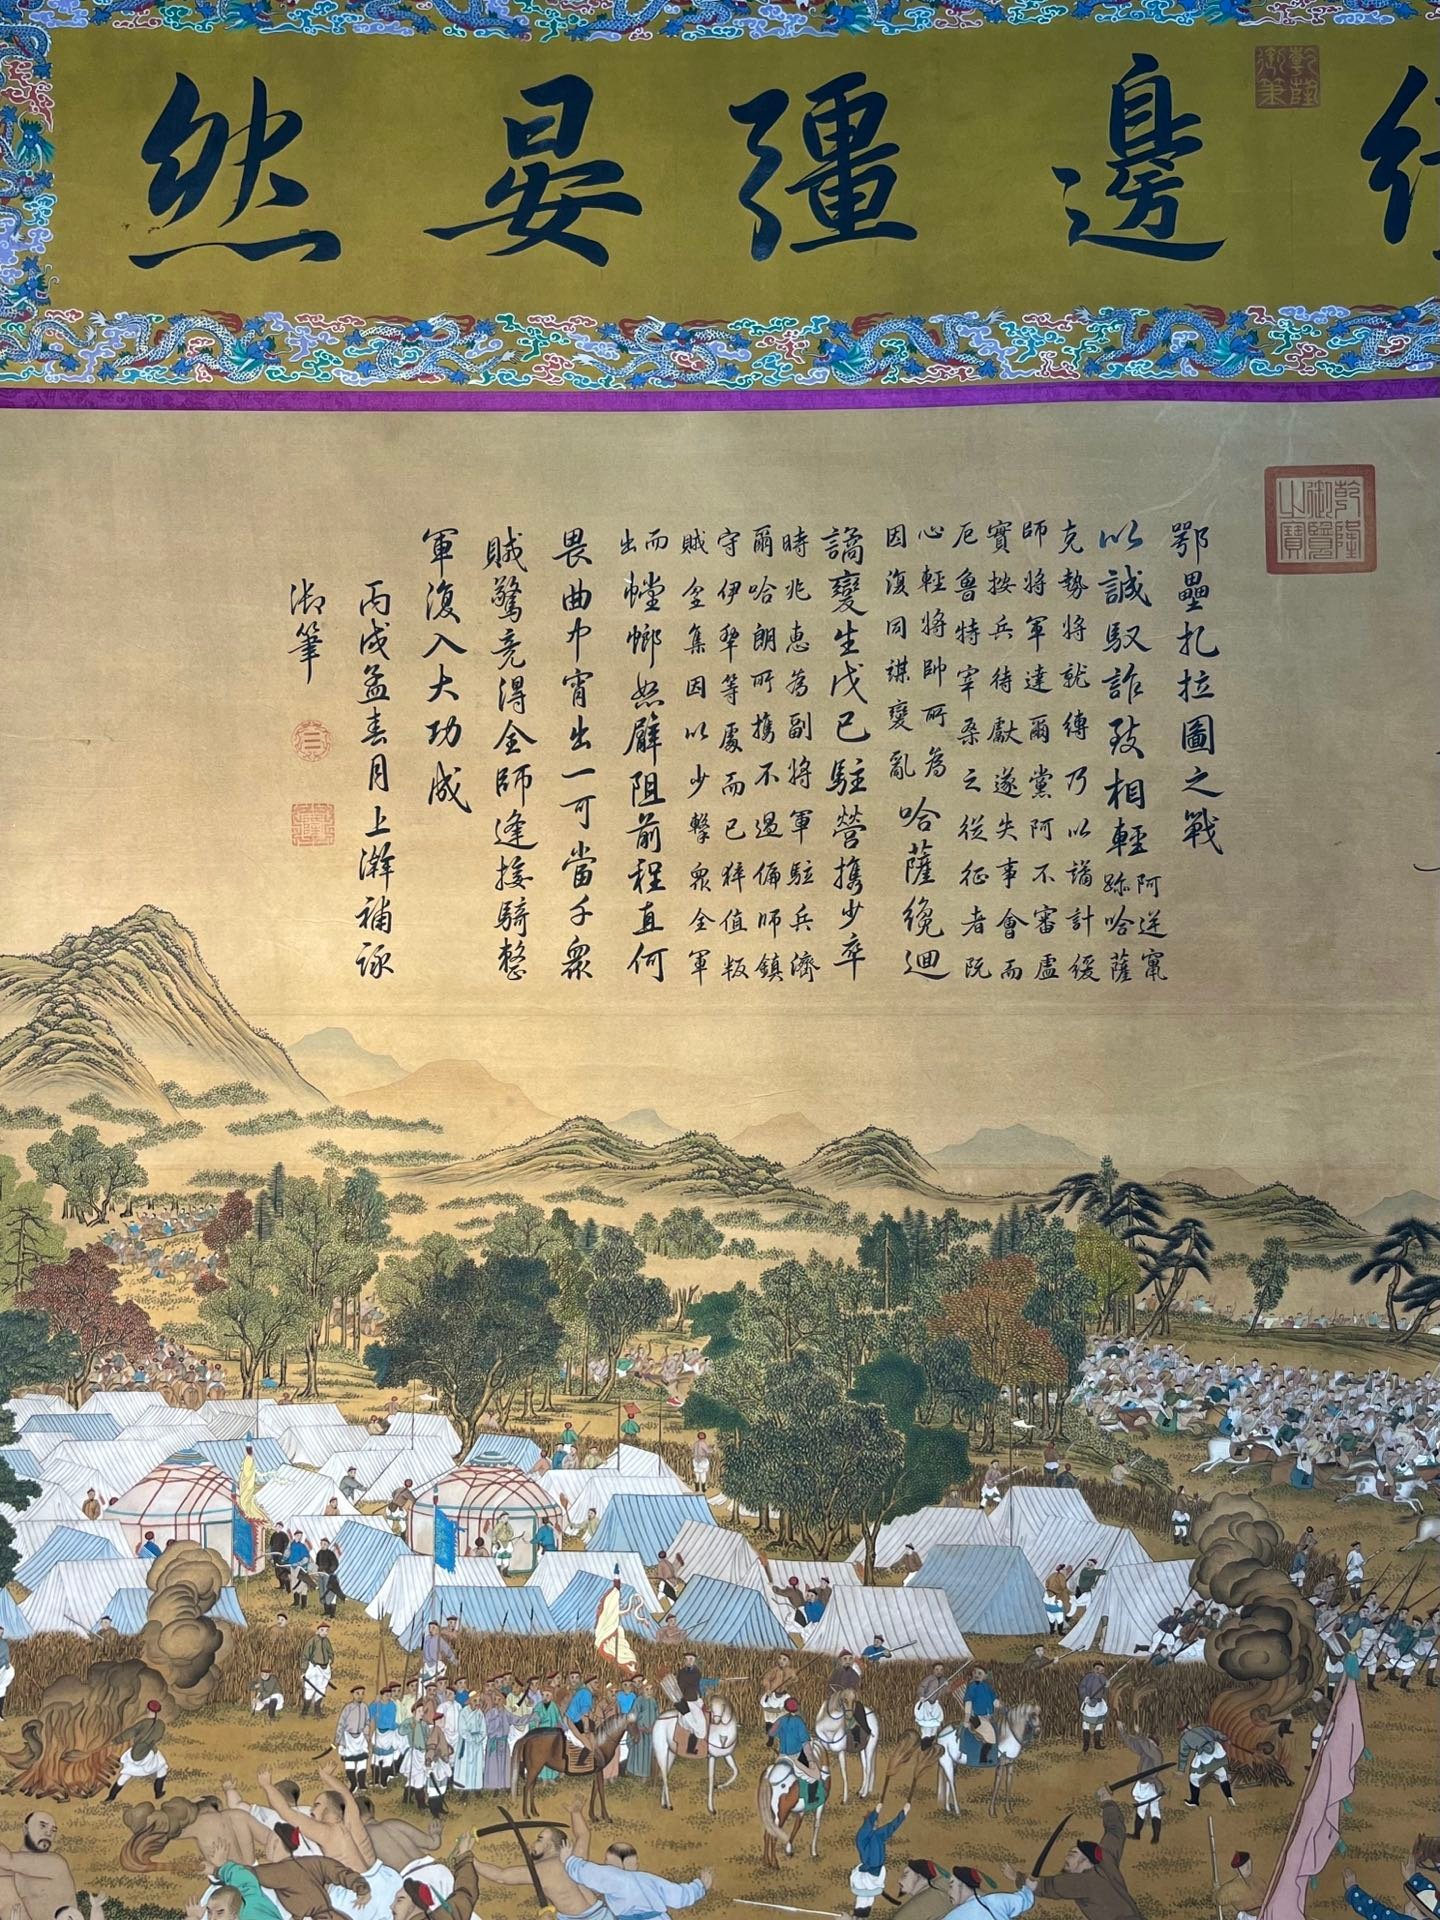 邊疆晏然
乾隆御筆
乾隆御覽之寶
鄂壘扎拉圖之戰
以誠馭詐致相輕阿逆竄跡哈薩
克勢將就縛乃以譎計緩
師將軍達爾黨阿不審虛
實按兵待獻遂失事會而
厄魯特宰桑之從征者阮
心輕將帥所為
因復同謀變亂哈薩纔迴
譎變生戊已駐營攜少卒
時兆惠為副將軍駐兵濟
爾哈朗所攜不過偏師鎮
守伊犂等處而已猝值叛
賊坌集因以少擊衆全軍
而出螳螂怒臂阻前程直何
畏曲中宵出一可當千衆
賊驚竞得全師逢接騎整
軍復入大功成
丙戌孟春月上澣補詠
御筆